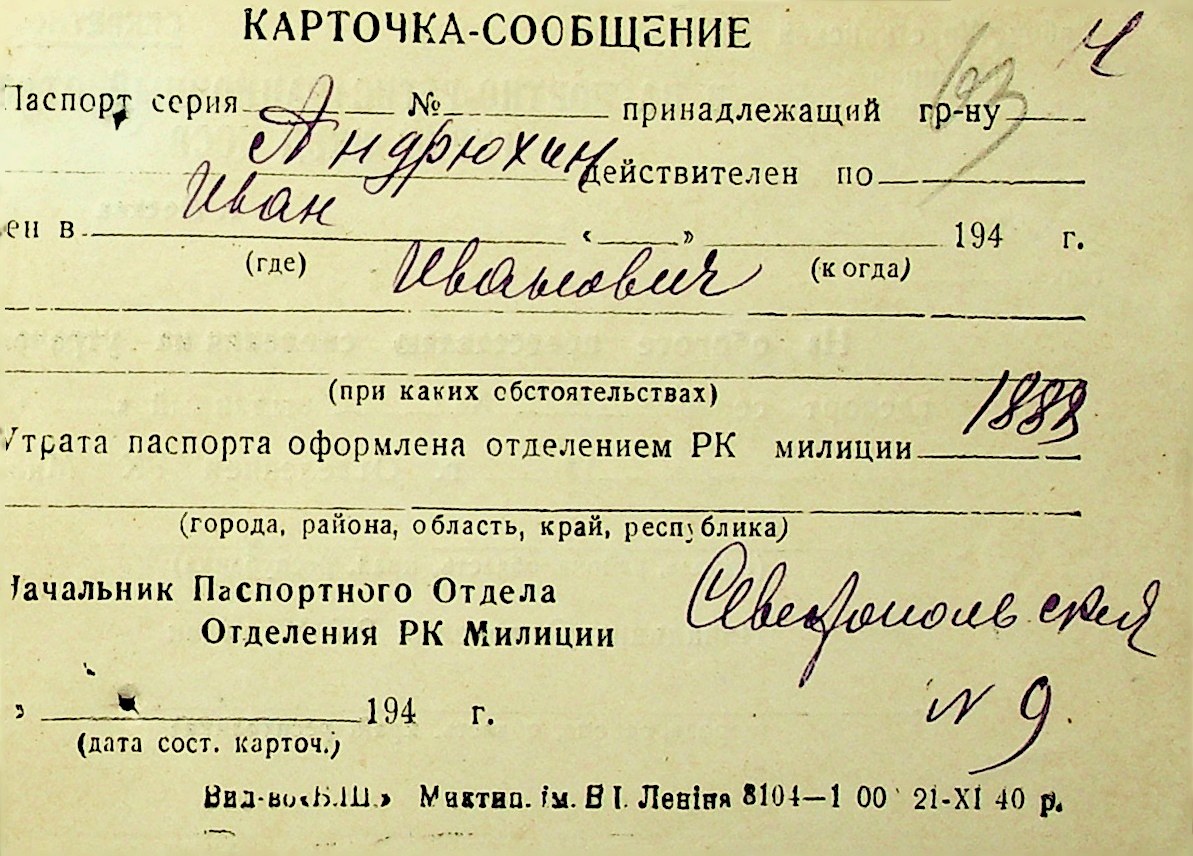 КАРТОЧКА-СООБЩЕНИЕ
Ч
Паспорт серия № принадлежащий гр-ну
Андрюхин действителен по
Иван
ен в « » 194 г.
(где) Иванович (когда)
(при каких обстоятельствах)
1883
Утрата паспорта оформлена отделением РК милиции
(города, района, область, край, республика)
Начальник Паспортного Отдела
Отделения РК Милиции
Севастопольская
№ 9.
» 194 г.
(дата сост. карточ.)
Вид-во «Б.Ш.» Миктип. ім. В І. Леніна 8104—1 00 21-XI 40 р.